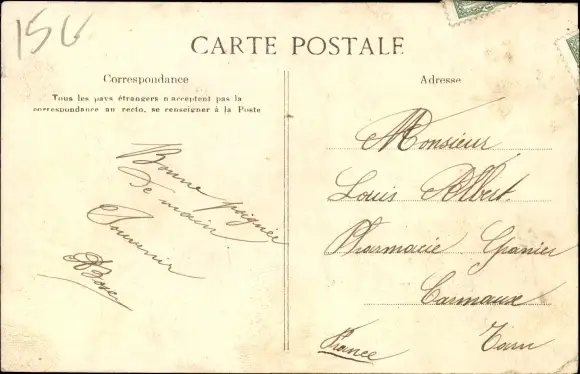 15G
CARTE POSTALE
Correspondance
Tous les pays étrangers n'acceptent pas la
correspondance au recto, se renseigner à la Poste
Bonne poignée
de main
Souvenir
Adresse
Monsieur
Louis Albert
Pharmacie Granier
Carmaux
France Tarn